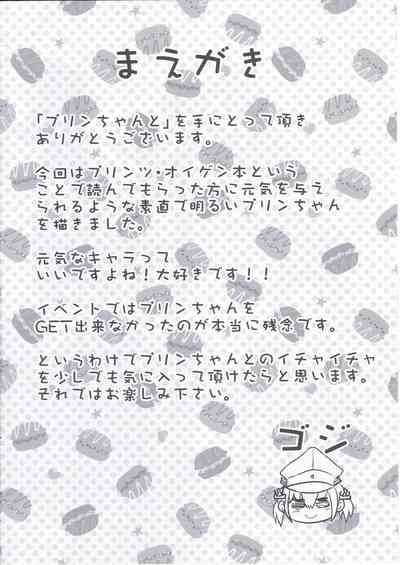 まえがき
「プリンちゃんと」を手にとって頂き
ありがとうございます。
今回はプリンツ・オイゲン本という
ことで読んでもらった方に元気を与え
られるような素直で明るいプリンちゃん
を描きました。
元気なキャラって
いいですよね!大好きです!!
イベントではプリンちゃんを
GET出来なかったのが本当に残念です。
というわけでプリンちゃんとのイチャイチャ
を少しでも気に入って頂けたらと思います。
それではお楽しみ下さい。
ゴジ